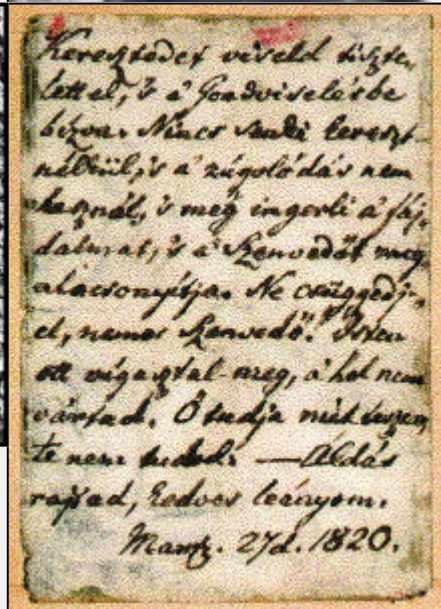 Keresztedet viseld tiszte,
lettel, 's a' Gondviselésbe
bízva. Nincs senki kereszt
nélkül, 's a' zúgolódás nem
használ, 's még ingerli a' fáj,
dalmat, 's a' Szenvedőt meg,
alacsonyítja. Ne csüggedj,
el, nemes Szenvedő! Isten
ott vígasztal-meg, a' hol nem
vártad. Ő tudja mit teszen,
te nem tudod. — Áldás
rajtad, kedves leányom.
Martz. 27d. 1820.